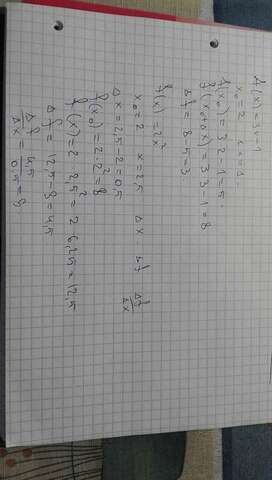 f(x)=3x-1
x₀=2
f(x₀)=3·2-1=5
f(x₀+Δx)=3·3-1=8
Δf=8-5=3
f(x)=2x²
x₀=2 x=2,5 Δx Δf Δf/Δx
Δx=2,5-2=0,5
f(x₀)=2·2²=8
f(x)=2·2,5²=2·6,25=12,5
Δf=12,5-8=4,5
Δf/Δx=4,5/0,5=9